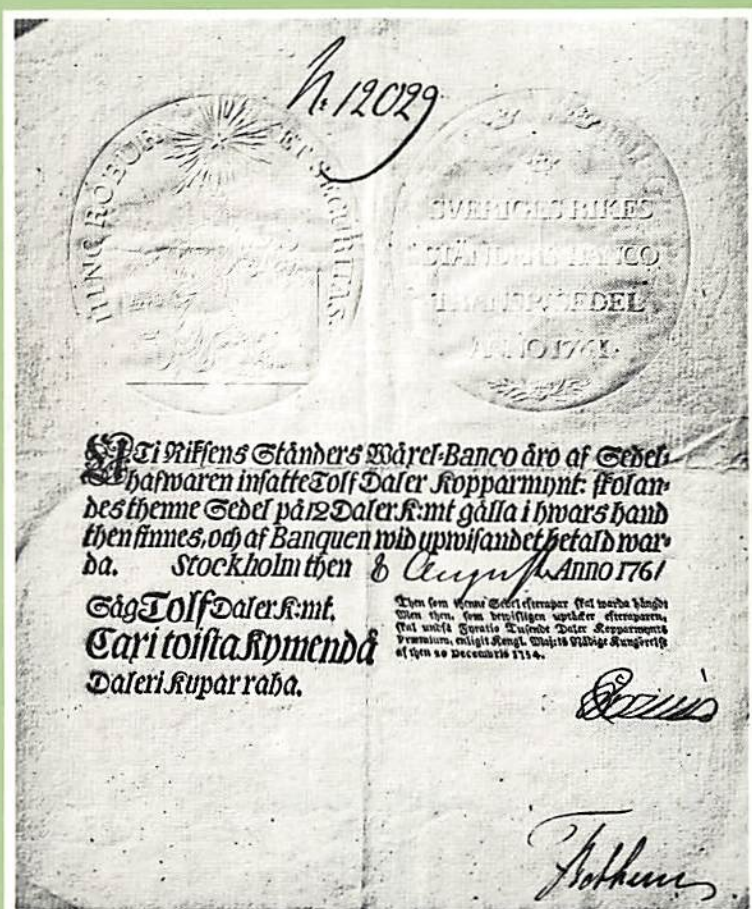 N. 12029
HINC ROBUR ET SECURITAS
SVERIGES RIKES
STÄNDERS BANCO
TRANSP. SEDEL
ANNO 1761.
Uti Riksens Ständers Wäxel-Banco äro af Sedel-
hafwaren insatte Tolf Daler Kopparmynt: skolan-
des thenne Sedel på 12 Daler K:mt gälla i hwars hand
then finnes, och af Banquen wid upwisandet betald war-
da. Stockholm then 8 August Anno 1761
Säg Tolf Daler K:mt.
Caxi toista kymendå
Daleri Kupar raha.
Then som thenne Sedel efterapar skal warda hängd:
Men then, som bewisligen uptäcker efteraparen,
skal undfå Fyratio Tusende Daler Kopparmynts
Præmium, enligit Kongl. Maj:ts Nådige Kungörelse
af then 10 Decembris 1754.